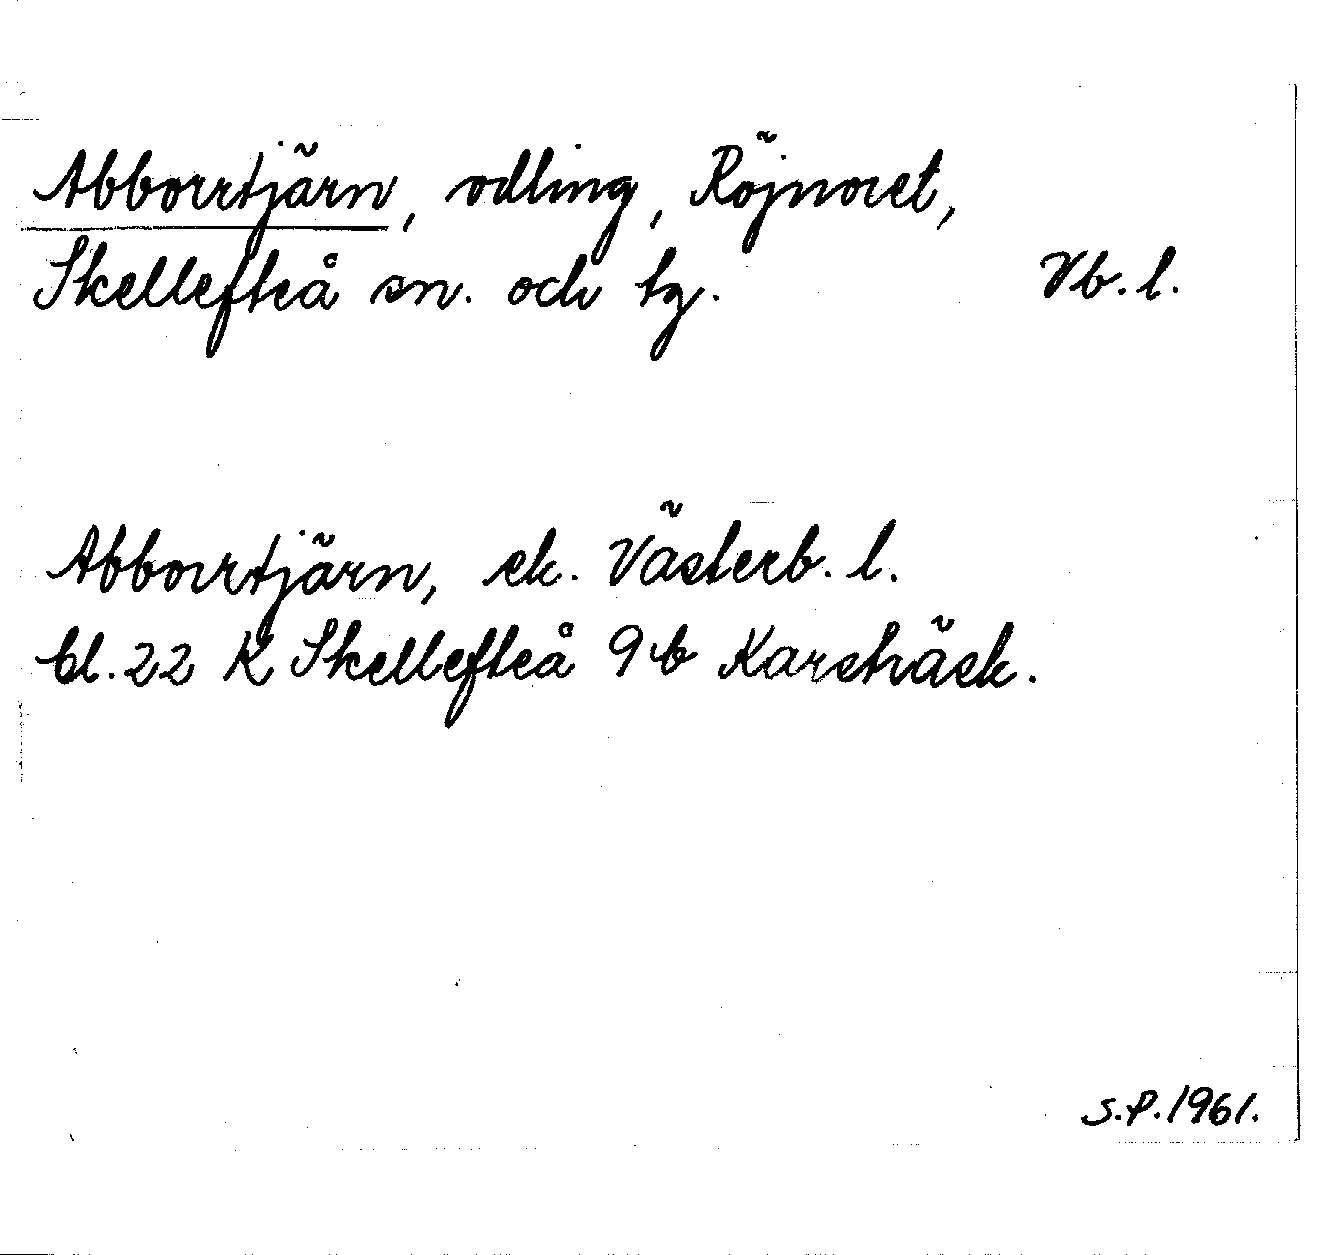 Abborrtjärn, odling, Röjnoret,
Skellefteå sn. och tg. Vb. l.
Abborrtjärn, ek. Västerb. l.
bl. 22 K Skellefteå 9b Karsbäck.
S.P. 1961.